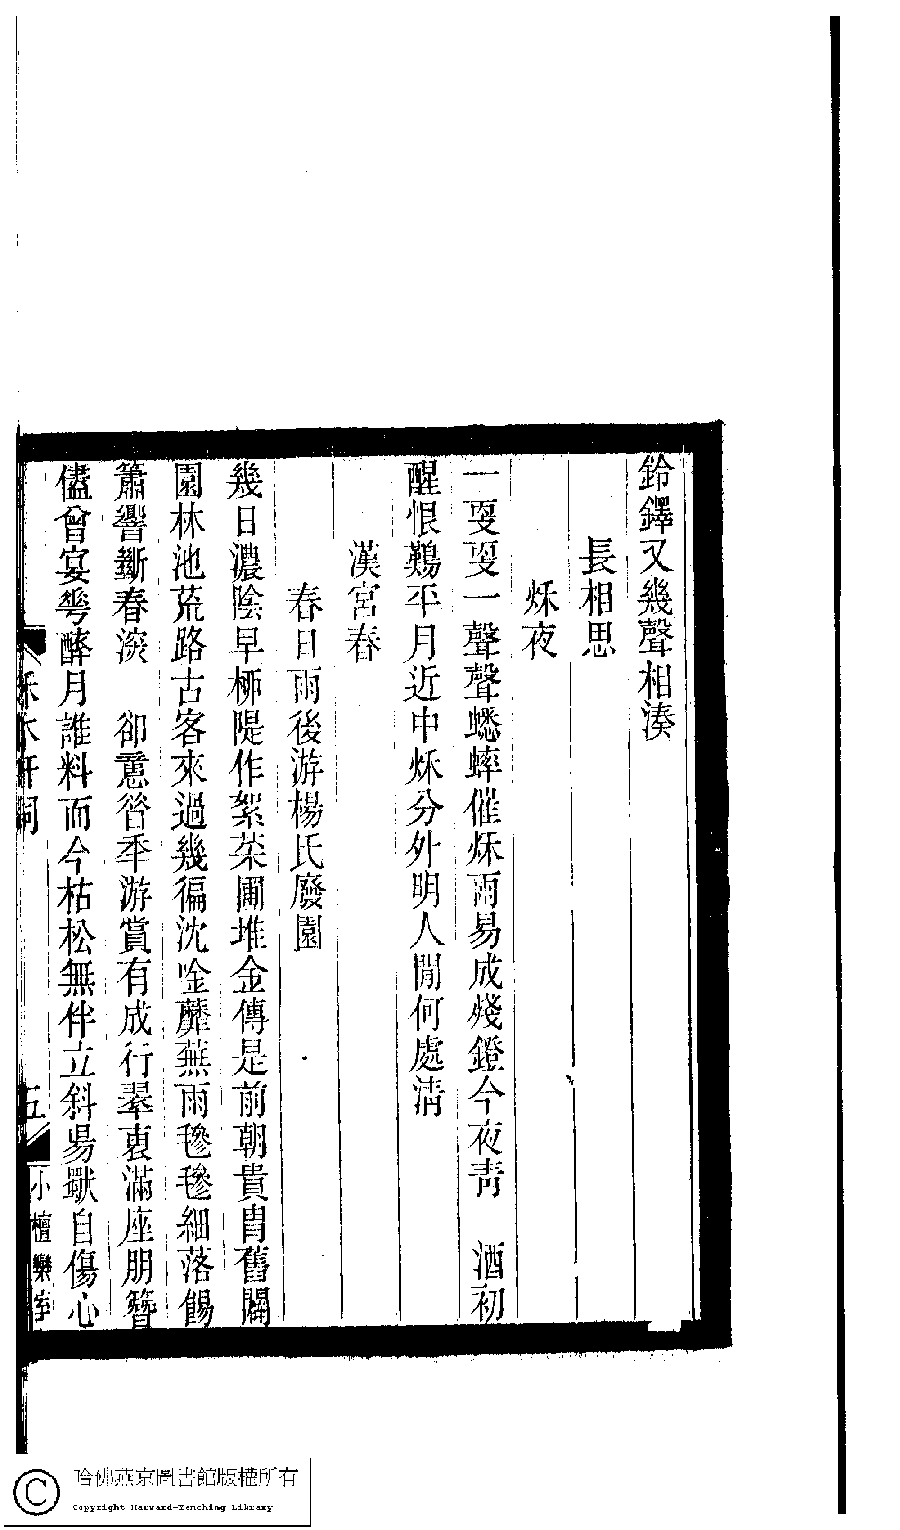 鈴鐸又幾聲相湊
長相思
秌夜
一㪅㪅一聲聲蟋蟀催秌雨易成殘鐙今夜靑　酒初
醒恨難平月近中秌分外明人閒何處淸
漢宮春
春日雨後游楊氏廢園
幾日濃陰早桺隄作絮茶圃堆金傳是前朝貴冑舊闢
園林池荒路古客來過幾徧沈唫蘼蕪雨毿毿細落餳
簫響斷春㴱　卻憙昝秊游賞有成行翠褏滿座朋簪
儘曾宴䔢醉月誰料而今枯松無伴立斜昜獣自傷心
秌水軒詞
五
小檀欒室
哈佛燕京圖書館版權所有
Copyright Harvard-Yenching Library